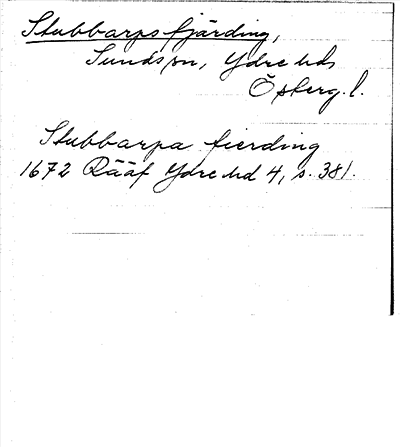 Stubbarps fjärding,
Sunds sn, Ydre hd
Österg. l.
Stubbarpa fierding
1672 Rääf Ydre hd 4, s. 381.